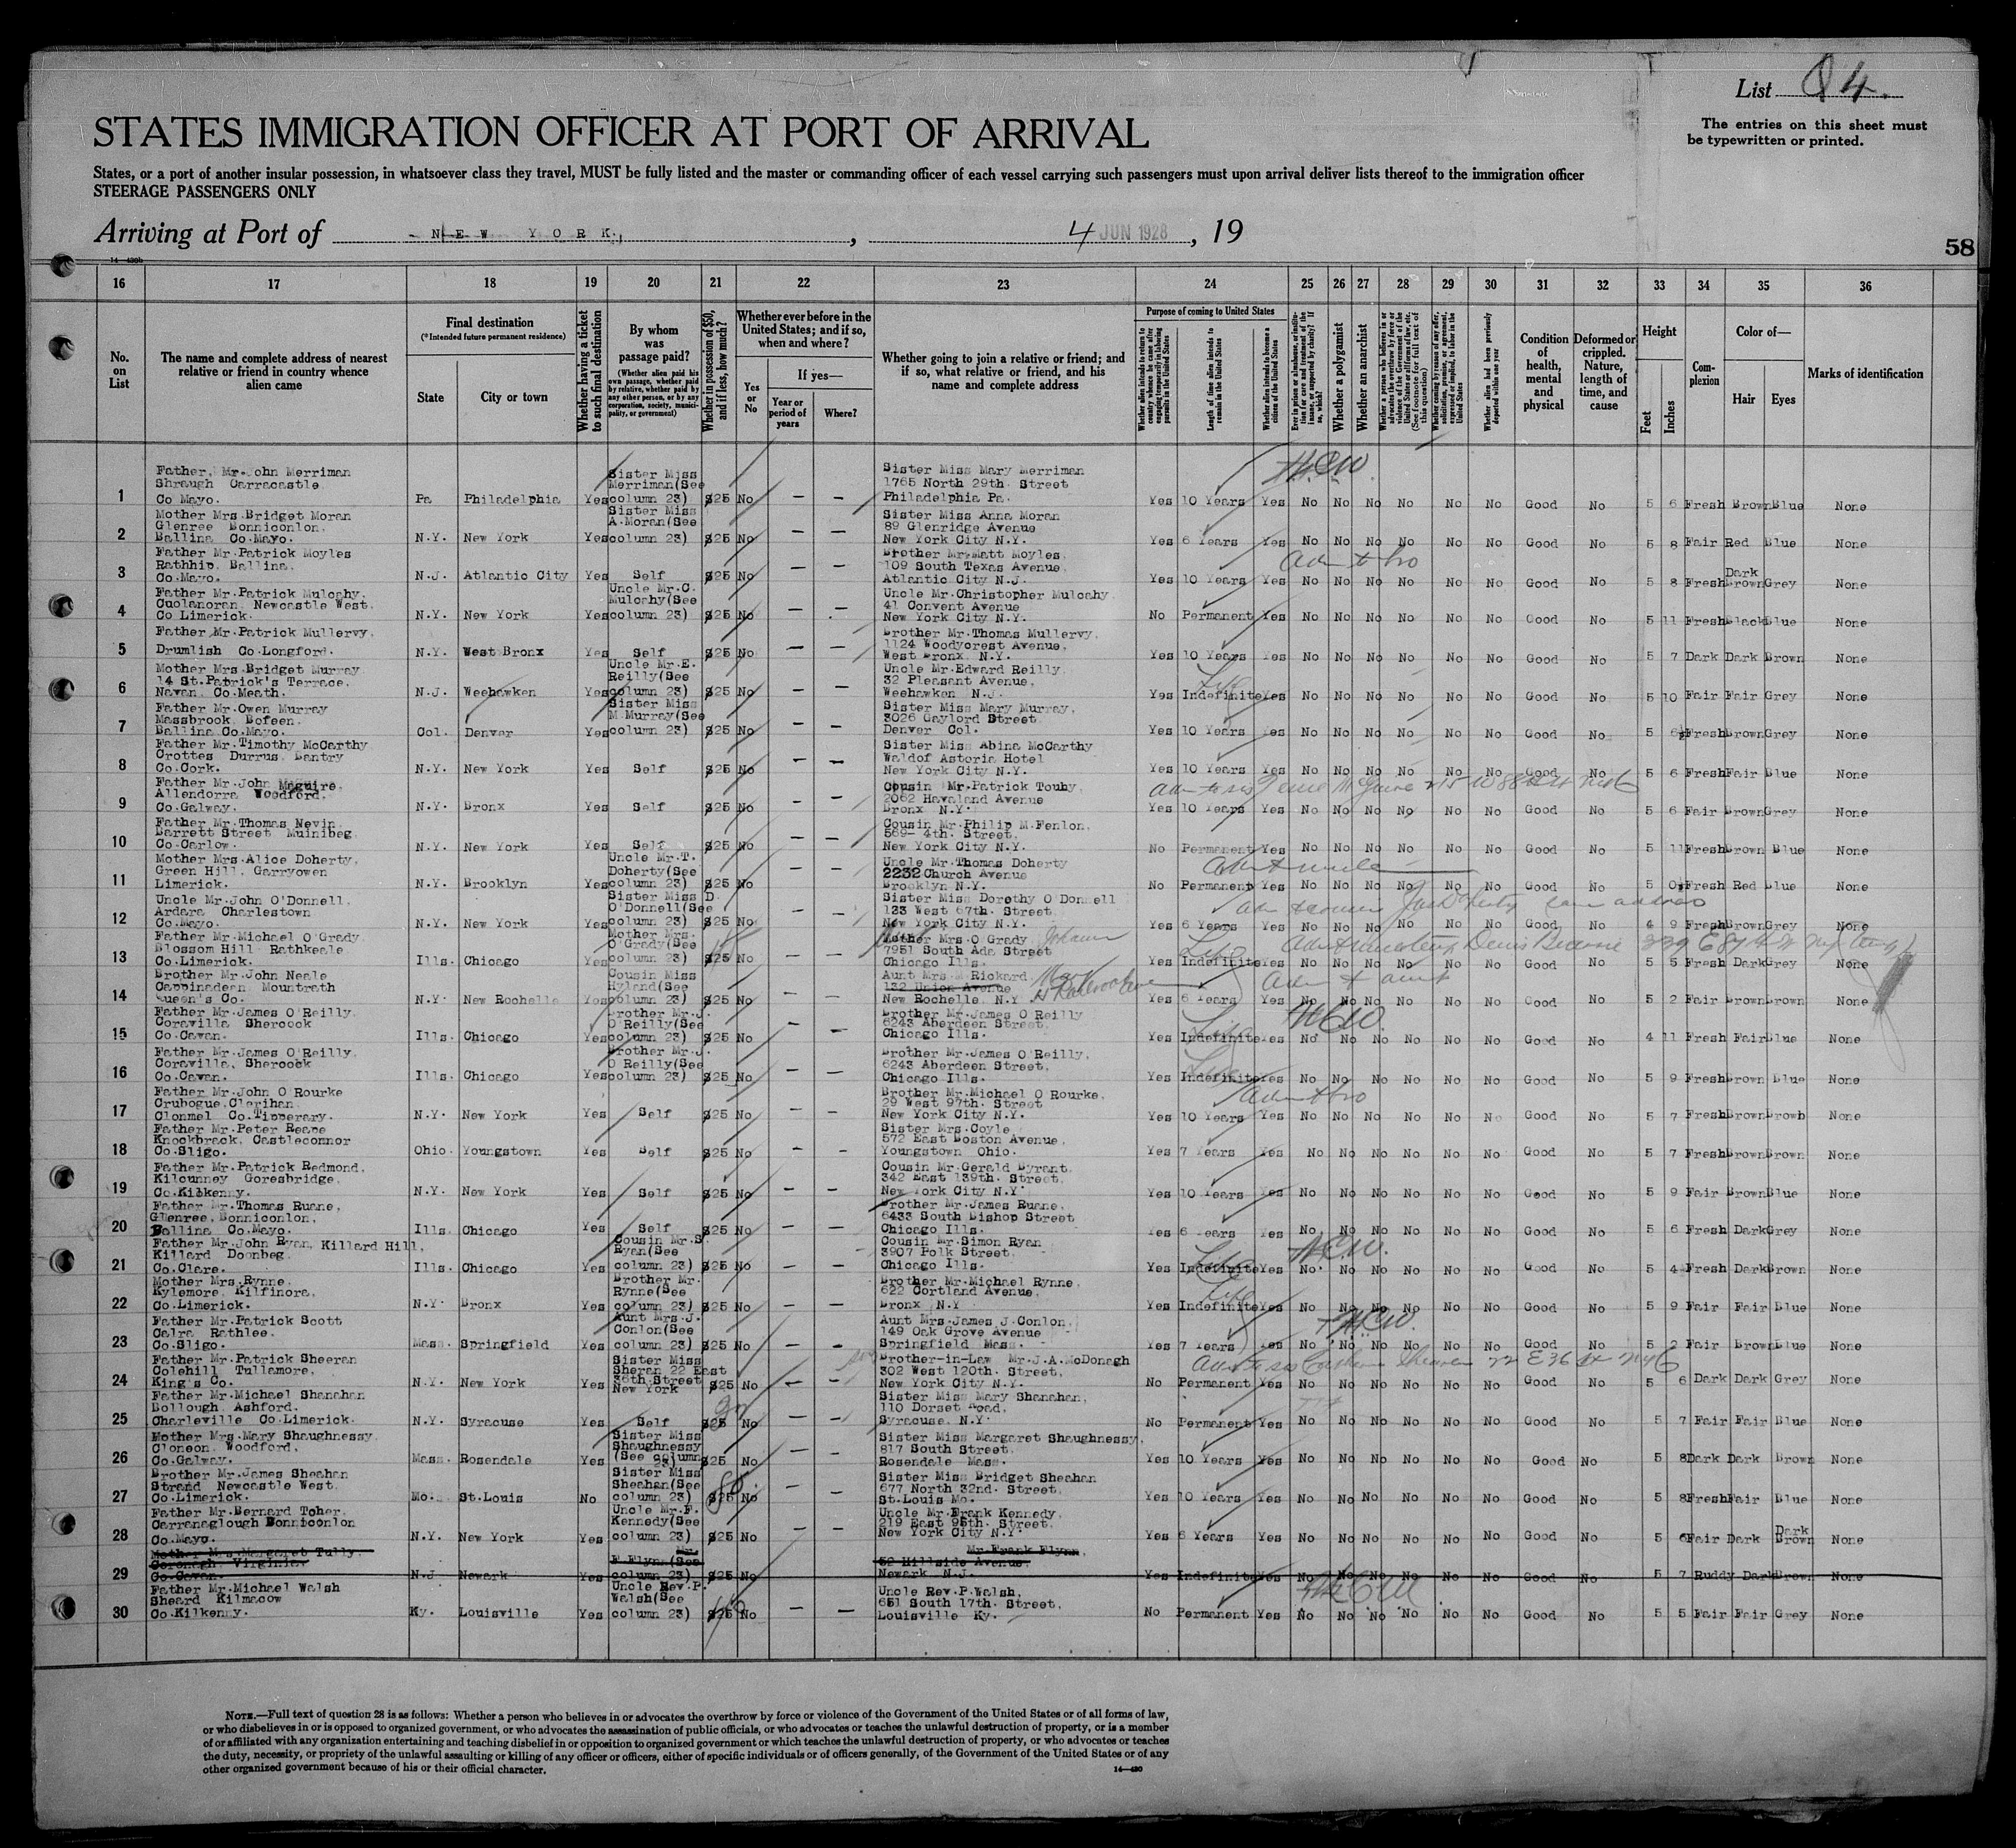 List 84.
The entries on this sheet must
be typewritten or printed.
STATES IMMIGRATION OFFICER AT PORT OF ARRIVAL
States, or a port of another insular possession, in whatsoever class they travel, MUST be fully listed and the master or commanding officer of each vessel carrying such passengers must upon arrival deliver lists thereof to the immigration officer
STEERAGE PASSENGERS ONLY
Arriving at Port of NEW YORK., , 4 JUN 1928, 19
58
14—430b
16 17 18 19 20 21 22 23 24 25 26 27 28 29 30 31 32 33 34 35 36
No. on List
The name and complete address of nearest relative or friend in country whence alien came
Final destination
(*Intended future permanent residence)
State
City or town
Whether having a ticket to such final destination
By whom was passage paid?
(Whether alien paid his own passage, whether paid by relative, whether paid by any other person, or by any corporation, society, municipality, or government)
Whether in possession of $50, and if less, how much?
Whether ever before in the United States; and if so, when and where?
Yes or No
If yes—
Year or period of years
Where?
Whether going to join a relative or friend; and if so, what relative or friend, and his name and complete address
Purpose of coming to United States
Whether alien intends to return to country whence he came after engaging temporarily in laboring pursuits in the United States
Length of time alien intends to remain in the United States
Whether alien intends to become a citizen of the United States
Ever in prison or almshouse, or institution for care and treatment of the insane, or supported by charity? If so, which?
Whether a polygamist
Whether an anarchist
Whether a person who believes in or advocates the overthrow by force or violence of the Government of the United States or all forms of law, etc. (See footnote for full text of this question)
Whether coming by reason of any offer, solicitation, promise, or agreement, expressed or implied, to labor in the United States
Whether alien had been previously deported within one year
Condition of health, mental and physical
Deformed or crippled. Nature, length of time, and cause
Height
Feet
Inches
Complexion
Color of—
Hair
Eyes
Marks of identification
1 Father, Mr. John Merriman Shraugh Carracastle Co Mayo. Pa Philadelphia Yes Sister Miss Merriman(See column 23) $25 No — — Sister Miss Mary Merriman 1765 North 29th. Street Philadelphia Pa. Yes 10 Years Yes No No No No No No Good No 5 6 Fresh Brown Blue None
2 Mother Mrs.Bridget Moran Glenree Bonniconlon, Ballina Co.Mayo. N.Y. New York Yes Sister Miss A.Moran(See column 23) $25 No — — Sister Miss Anna Moran 89 Glenridge Avenue New York City N.Y. Yes 6 Years Yes No No No No No No Good No 5 8 Fair Red Blue None
3 Father Mr.Patrick Moyles Rathhip, Ballina, Co.Mayo. N.J. Atlantic City Yes Self $25 No — — Brother Mr.Matt Moyles, 109 South Texas Avenue, Atlantic City N.J. Yes 10 Years Yes No No No No No No Good No 5 8 Fresh Dark Brown Grey None
4 Father Mr.Patrick Mulcahy, Cuolanoran, Newcastle West, Co Limerick. N.Y. New York Yes Uncle Mr.C. Mulcahy(See column 23) $25 No — — Uncle Mr.Christopher Mulcahy, 41 Convent Avenue New York City N.Y. No Permanent Yes No No No No No No Good No 5 11 Fresh Black Blue None
5 Father Mr.Patrick Mullervy, Drumlish Co.Longford. N.Y. West Bronx Yes Self $25 No — — Brother Mr.Thomas Mullervy, 1124 Woodycrest Avenue, West Bronx N.Y. Yes 10 Years Yes No No No No No No Good No 5 7 Dark Dark Brown None
6 Mother Mrs.Bridget Murray 14 St.Patrick's Terrace, Navan Co.Meath. N.J. Weehawken Yes Uncle Mr.E. Reilly(See column 23) $25 No — — Uncle Mr.Edward Reilly, 32 Pleasant Avenue, Weehawken N.J. Yes Indefinite Life Yes No No No No No No Good No 5 10 Fair Fair Grey None
7 Father Mr.Owen Murray Massbrook, Bofeen, Ballina Co.Mayo. Col. Denver Yes Sister Miss M Murray(See column 23) $25 No — — Sister Miss Mary Murray, 3026 Gaylord Street Denver Col. Yes 10 Years Yes No No No No No No Good No 5 6½ Fresh Brown Grey None
8 Father Mr.Timothy McCarthy Crottes Durrus, Bantry Co.Cork. N.Y. New York Yes Self $25 No — — Sister Miss Abina McCarthy Waldof Astoria Hotel New York City N.Y. Yes 10 Years Yes No No No No No No Good No 5 6 Fresh Fair Blue None
9 Father Mr.John Maguire, Allendorra Woodford, Co.Galway. N.Y. Bronx Yes Self $25 No — — Cousin Mr.Patrick Touhy, 2062 Havaland Avenue Bronx N.Y. Yes 10 Years Yes No No No No No No Good No 5 6 Fair Brown Grey None
10 Father Mr.Thomas Nevin, Barrett Street Muinibeg, Co.Carlow. N.Y. New York Yes Self $25 No — — Cousin Mr.Philip M.Fenlon, 589- 4th. Street, New York City N.Y. No Permanent Yes No No No No No No Good No 5 11 Fresh Brown Blue None
11 Mother Mrs.Alice Doherty, Green Hill, Garryowen Limerick. N.Y. Brooklyn Yes Uncle Mr.T. Doherty(See column 23) $25 No Uncle Mr.Thomas Doherty 2232 Church Avenue Brooklyn N.Y. No Permanent Yes No No No No No No Good No 5 0½ Fresh Red Blue None
12 Uncle Mr.John O'Donnell, Ardara Charlestown Co.Mayo. N.Y. New York Yes Sister Miss D. O'Donnell(See column 23) $25 No — — Sister Miss Dorothy O Donnell 123 West 67th. Street, New York City N.Y. Yes 6 Years Yes No No No No No No Good No 4 9 Fresh Brown Grey None
13 Father Mr.Michael O'Grady, Blossom Hill Rathkeale Co.Limerick. Ills. Chicago Yes Mother Mrs. O'Grady(See column 23) $25 No — — Mother Mrs O Grady, 7951 South Ada Street Chicago Ills. Yes Indefinite Life Yes No No No No No No Good No 5 5 Fresh Dark Grey None
14 Brother Mr.John Neale Cappinadeen Mountrath Queen's Co. N.Y. New Rochelle Yes Cousin Miss Hyland(See column 23) $25 No — — Aunt Mrs.M Rickard, Mary 132 Union Avenue New Rochelle N.Y. Yes 6 Years Yes No No No No No No Good No 5 2 Fair Brown Brown None
15 Father Mr.James O'Reilly, Coravilla Shercock Co.Cavan. Ills. Chicago Yes Brother Mr.J. O'Reilly(See column 23) $25 No — — Brother Mr.James O Reilly 6243 Aberdeen Street, Chicago Ills. Yes Indefinite Life Yes No No No No No No Good No 4 11 Fresh Fair Blue None
16 Father Mr.James O'Reilly, Coravilla, Shercock Co.Cavan. Ills. Chicago Yes Brother Mr.J. O Reilly(See column 23) $25 No — — Brother Mr.James O Reilly, 6243 Aberdeen Street, Chicago Ills. Yes Indefinite Life Yes No No No No No No Good No 5 9 Fresh Brown Blue None
17 Father Mr.John O'Rourke Crubogue,Clerihan, Clonmel Co.Tipperary. N.Y. New York Yes Self $25 No — — Brother Mr.Michael O Rourke, 29 West 97th. Street New York City N.Y. Yes 10 Years Yes No No No No No No Good No 5 7 Fresh Brown Browb None
18 Father Mr.Peter Reape Knockbrack, Castleconnor Co.Sligo. Ohio. Youngstown Yes Self $25 No — — Sister Mrs.Coyle 572 East Boston Avenue, Youngstown Ohio. Yes 7 Years Yes No No No No No No Good No 5 7 Fresh Brown Brown None
19 Father Mr.Patrick Redmond, Kilcunney Goresbridge, Co.Kilkenny. N.Y. New York Yes Self $25 No — — Cousin Mr.Gerald Byrant, 342 East 139th. Street, New York City N.Y. Yes 10 Years Yes No No No No No No Good No 5 9 Fair Brown Blue None
20 Father Mr.Thomas Ruane, Glenree, Bonniconlon, Ballina Co.Mayo. Ills. Chicago Yes Self $25 No — — Brother Mr.James Ruane, 6433 South Bishop Street Chicago Ills. Yes 6 Years Yes No No No No No No Good No 5 6 Fresh Dark Grey None
21 Father Mr.John Ryan, Killard Hill, Killard Doonbeg, Co.Clare. Ills. Chicago Yes Cousin Mr.S. Ryan(See column 23) $25 No — — Cousin Mr.Simon Ryan 3907 Polk Street, Chicago Ills. Yes Indefinite Life Yes No No No No No No Good No 5 4 Fresh Dark Brown None
22 Mother Mrs.Rynne, Kylemore, Kilfinora, Co.Limerick. N.Y. Bronx Yes Brother Mr. Rynne(See column 23) $25 No — — Brother Mr.Michael Rynne, 622 Cortland Avenue, Bronx N.Y Yes Indefinite Life Yes No No No No No No Good No 5 9 Fair Fair Blue None
23 Father Mr.Patrick Scott Calra Rathlee. Co.Sligo. Mass. Springfield Yes Aunt Mrs.J. Conlon(See column 23) $25 No — — Aunt Mrs.James J.Conlon, 149 Oak Grove Avenue Springfield Mass. Yes 7 Years Yes No No No No No No Good No 5 2 Fair Brown Blue None
24 Father Mr.Patrick Sheeran Colehill Tullamore, King's Co. N.Y. New York Yes Sister Miss Sheran 22 East 36th Street New York $25 No — — Brother-in-Law Mr.J.A.McDonagh 302 West 120th. Street, New York City N.Y. No Permanent Yes No No No No No No Good No 5 6 Dark Dark Grey None
25 Father Mr.Michael Shanahan Bollough Ashford. Charleville Co.Limerick. N.Y. Syracuse Yes Self $25 No — — Sister Miss Mary Shanahan, 110 Dorset Road, Syracuse N.Y. No Permanent Yes No No No No No No Good No 5 7 Fair Fair Blue None
26 Mother Mrs.Mary Shaughnessy, Cloneon Woodford, Co.Galway. Mass. Rosendale Yes Sister Miss Shaughnessy (See column 23) $25 No — — Sister Miss Margaret Shaughnessy, 817 South Street, Rosendale Mass. Yes 10 Years Yes No No No No No No Good No 5 8 Dark Dark Brown None
27 Brother Mr.James Sheahan Strand Newcastle West, Co.Limerick. Mo. St.Louis No Sister Miss Sheahan(See column 23) $25 80 No — — Sister Miss Bridget Sheahan 677 North 32nd. Street, St.Louis Mo. Yes 10 Years Yes No No No No No No Good No 5 8 Fresh Fair Blue None
28 Father Mr.Bernard Toher, Carranaglough Bonniconlon Co.Mayo. N.Y. New York Yes Uncle Mr.F. Kennedy(See column 23) $25 No — — Uncle Mr.Frank Kennedy, 219 East 95th. Street, New York City N.Y. Yes 6 Years Yes No No No No No No Good No 5 6 Fair Dark Dark Brown None
29 Mother Mrs.Margaret Tully, Coronagh Virginia, Co.Cavan. N.J Newark Yes Mr. F Flynn(See column 23) $25 No Mr.Frank Flynn, 52 Hillside Avenue, Newark N.J. Yes Indefinite Yes No No No No No No Good No 5 7 Ruddy Dark Brown None
30 Father Mr.Michael Walsh Sheard Kilmacow Co.Kilkenny. Ky. Louisville Yes Uncle Rev.P. Walsh(See column 23) $25 No — — Uncle Rev.P.Walsh, 651 South 17th. Street, Louisville Ky. No Permanent Yes No No No No No No Good No 5 5 Fair Fair Grey None
NOTE.—Full text of question 28 is as follows: Whether a person who believes in or advocates the overthrow by force or violence of the Government of the United States or of all forms of law,
or who disbelieves in or is opposed to organized government, or who advocates the assassination of public officials, or who advocates or teaches the unlawful destruction of property, or is a member
of or affiliated with any organization entertaining and teaching disbelief in or opposition to organized government or which teaches the unlawful destruction of property, or who advocates or teaches
the duty, necessity, or propriety of the unlawful assaulting or killing of any officer or officers, either of specific individuals or of officers generally, of the Government of the United States or of any
other organized government because of his or their official character.
14—430